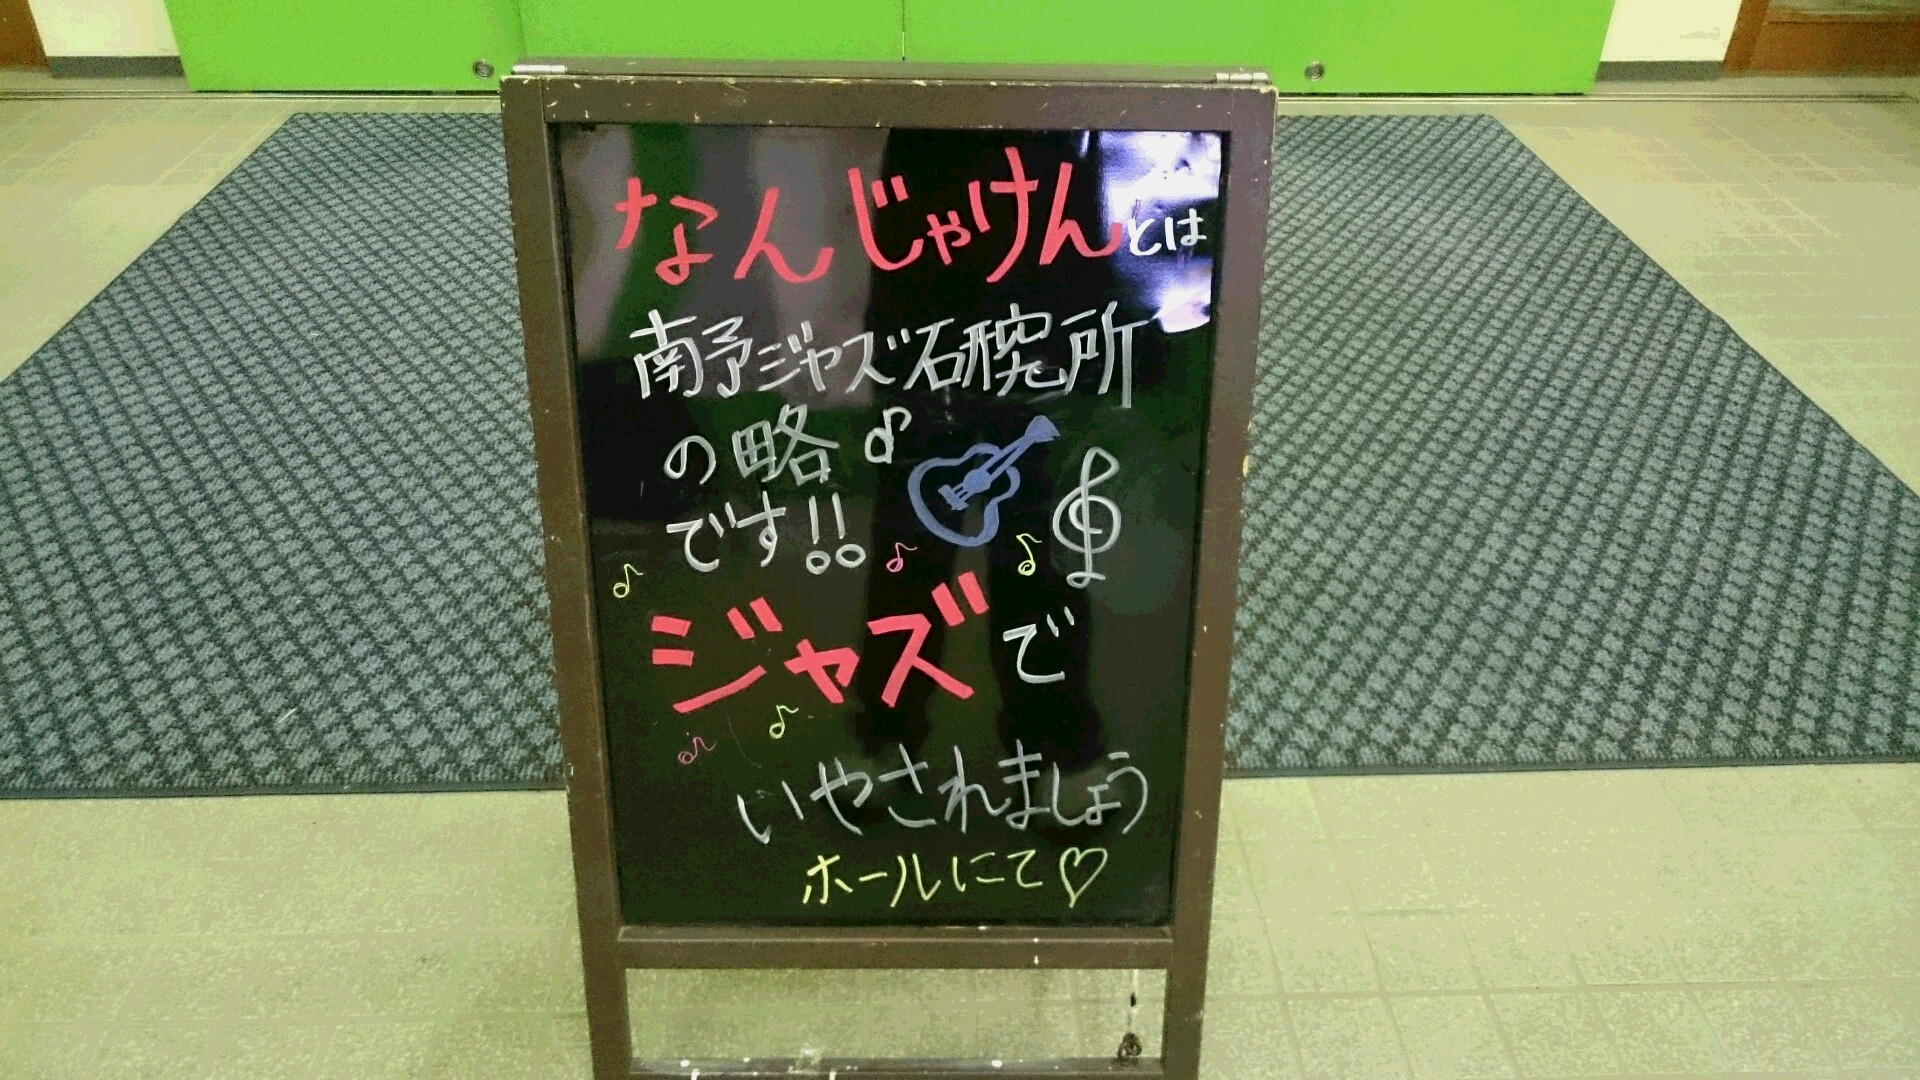 なんじゃけんとは
南予ジャズ研究所
の略
です!!
ジャズで
いやされましょう
ホールにて♡